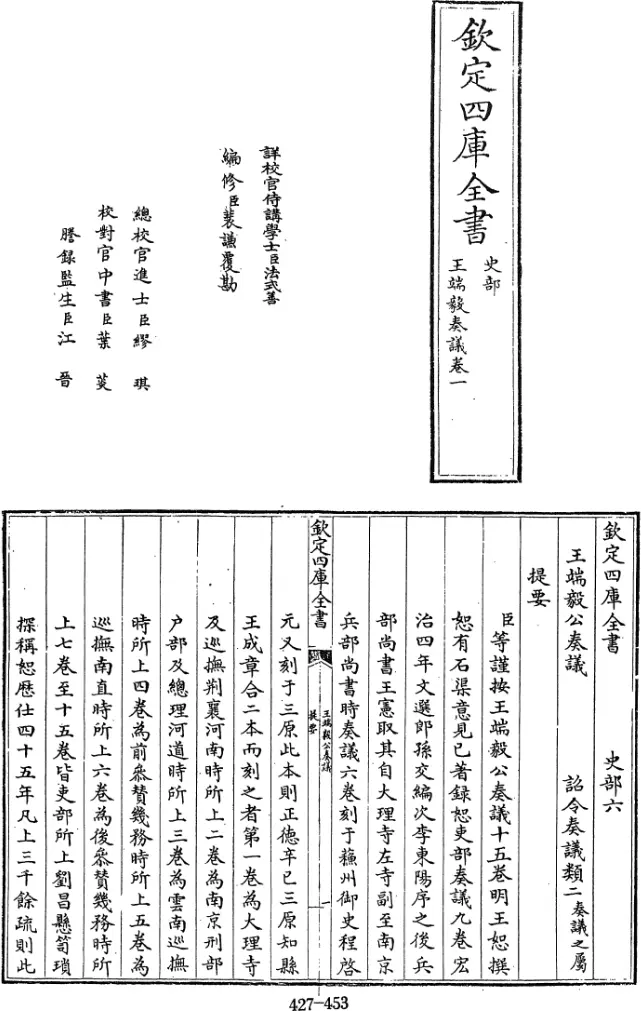 欽定四庫全書
史部
王端毅奏議卷一
詳校官侍講學士臣法式善
編修臣裴謙覆勘
總校官進士臣繆琪
校對官中書臣葉菼
謄錄監生臣江晉
欽定四庫全書 史部六
王端毅公奏議 詔令奏議類二奏議之屬
提要
臣等謹按王端毅公奏議十五卷明王恕撰
恕有石渠意見已著録恕吏部奏議九卷宏
治四年文選郎孫交編次李東陽序之後兵
部尚書王憲取其自大理寺左寺副至南京
兵部尚書時奏議六卷刻于蘓州御史程啓
欽定四庫全書
王端毅公奏議
提要
一
元又刻于三原此本則正德辛巳三原知縣
王成章合二本而刻之者第一卷為大理寺
及廵撫荆襄河南時所上二卷為南京刑部
户部及總理河道時所上三卷為雲南廵撫
時所上四卷為前叅賛幾務時所上五卷為
廵撫南直時所上六卷為後叅賛幾務時所
上七卷至十五卷皆吏部所上劉昌懸笥瑣
探稱恕歴仕四十五年凡上三千餘疏則此
427-453